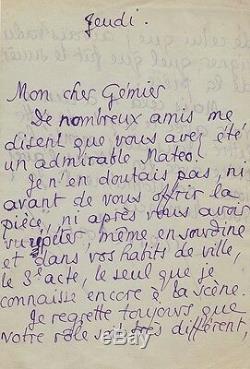 Jeudi.
Mon cher Gémier
De nombreux amis me
disent que vous avez été
un admirable Mateo.
Je n'en doutais pas, ni
avant de vous offrir la
pièce, ni après vous avoir
vu répéter, même en sourdine
et dans vos habits de ville,
le 3e acte, le seul que je
connaisse encore à la scène.
Je regrette toujours que
votre rôle soit très différent,
© bidtfun.fr